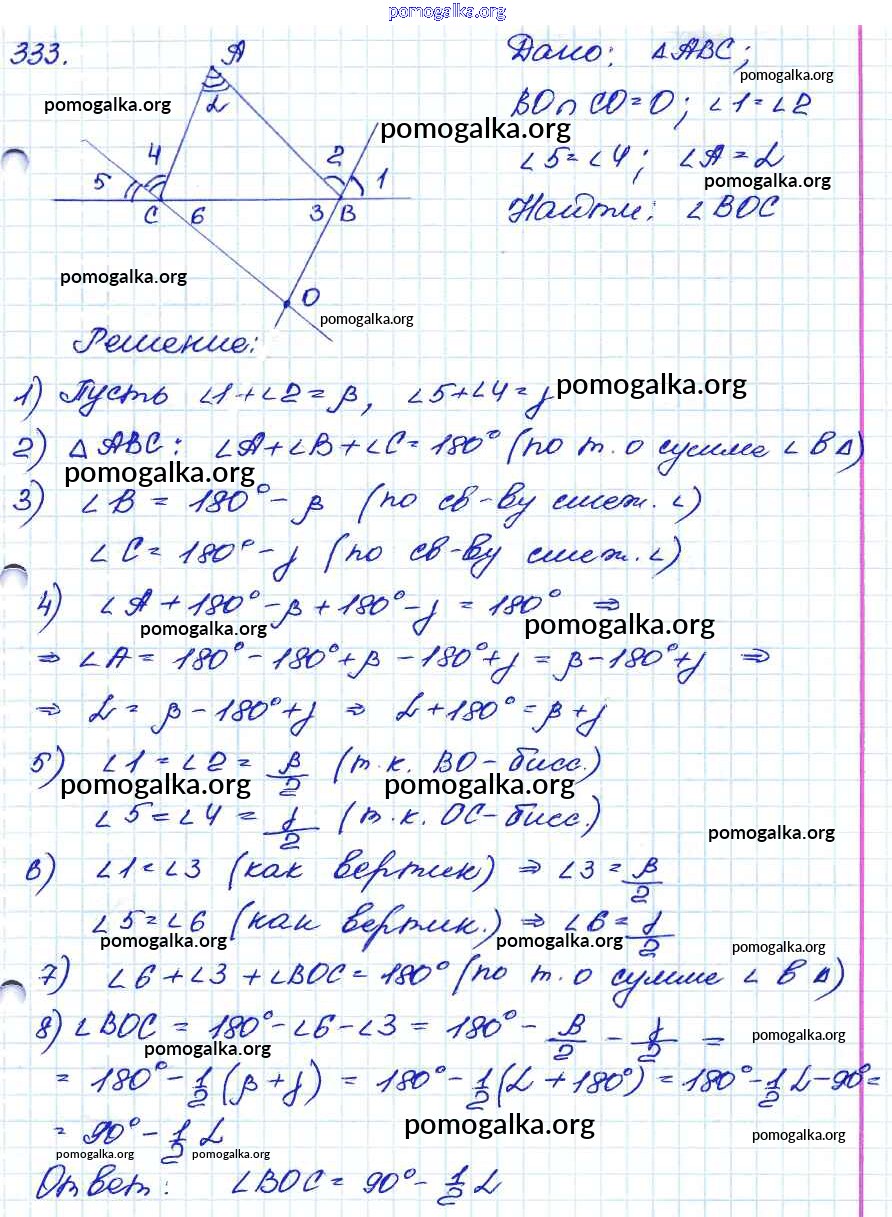 pomogalka.org
333.
A
L
4
5
C
6
2
1
3
B
O
Дано: △ABC;
BO∩CO=O; ∠1=∠2
∠5=∠4; ∠A=L
Найти: ∠BOC
pomogalka.org
pomogalka.org
pomogalka.org
pomogalka.org
pomogalka.org
pomogalka.org
Решение:
1) Пусть ∠1+∠2=β, ∠5+∠4=j
pomogalka.org
2) △ABC: ∠A+∠B+∠C=180° (по т. о сумме ∠ в △)
pomogalka.org
3) ∠B = 180°-β (по св-ву смеж. ∠)
∠C = 180°-j (по св-ву смеж. ∠)
4) ∠A+180°-β+180°-j = 180° ⇒
pomogalka.org
pomogalka.org
⇒ ∠A = 180°-180°+β-180°+j = β-180°+j ⇒
⇒ L = β-180°+j ⇒ L+180°=β+j
5) ∠1=∠2= β/2 (т.к. BO-бисс.)
pomogalka.org
pomogalka.org
∠5=∠4 = j/2 (т.к. OC-бисс.)
pomogalka.org
6) ∠1=∠3 (как вертик) ⇒ ∠3=β/2
∠5=∠6 (как вертик.) ⇒ ∠6=j/2
pomogalka.org
pomogalka.org
pomogalka.org
7) ∠6+∠3+∠BOC=180° (по т. о сумме ∠ в △)
8) ∠BOC = 180°-∠6-∠3 = 180°- β/2 - j/2 =
pomogalka.org
pomogalka.org
= 180°-1/2(β+j) = 180°-1/2(L+180°) = 180°-1/2L-90°=
= 90°-1/2 L
pomogalka.org
pomogalka.org
pomogalka.org
pomogalka.org
Ответ: ∠BOC = 90°-1/2 L